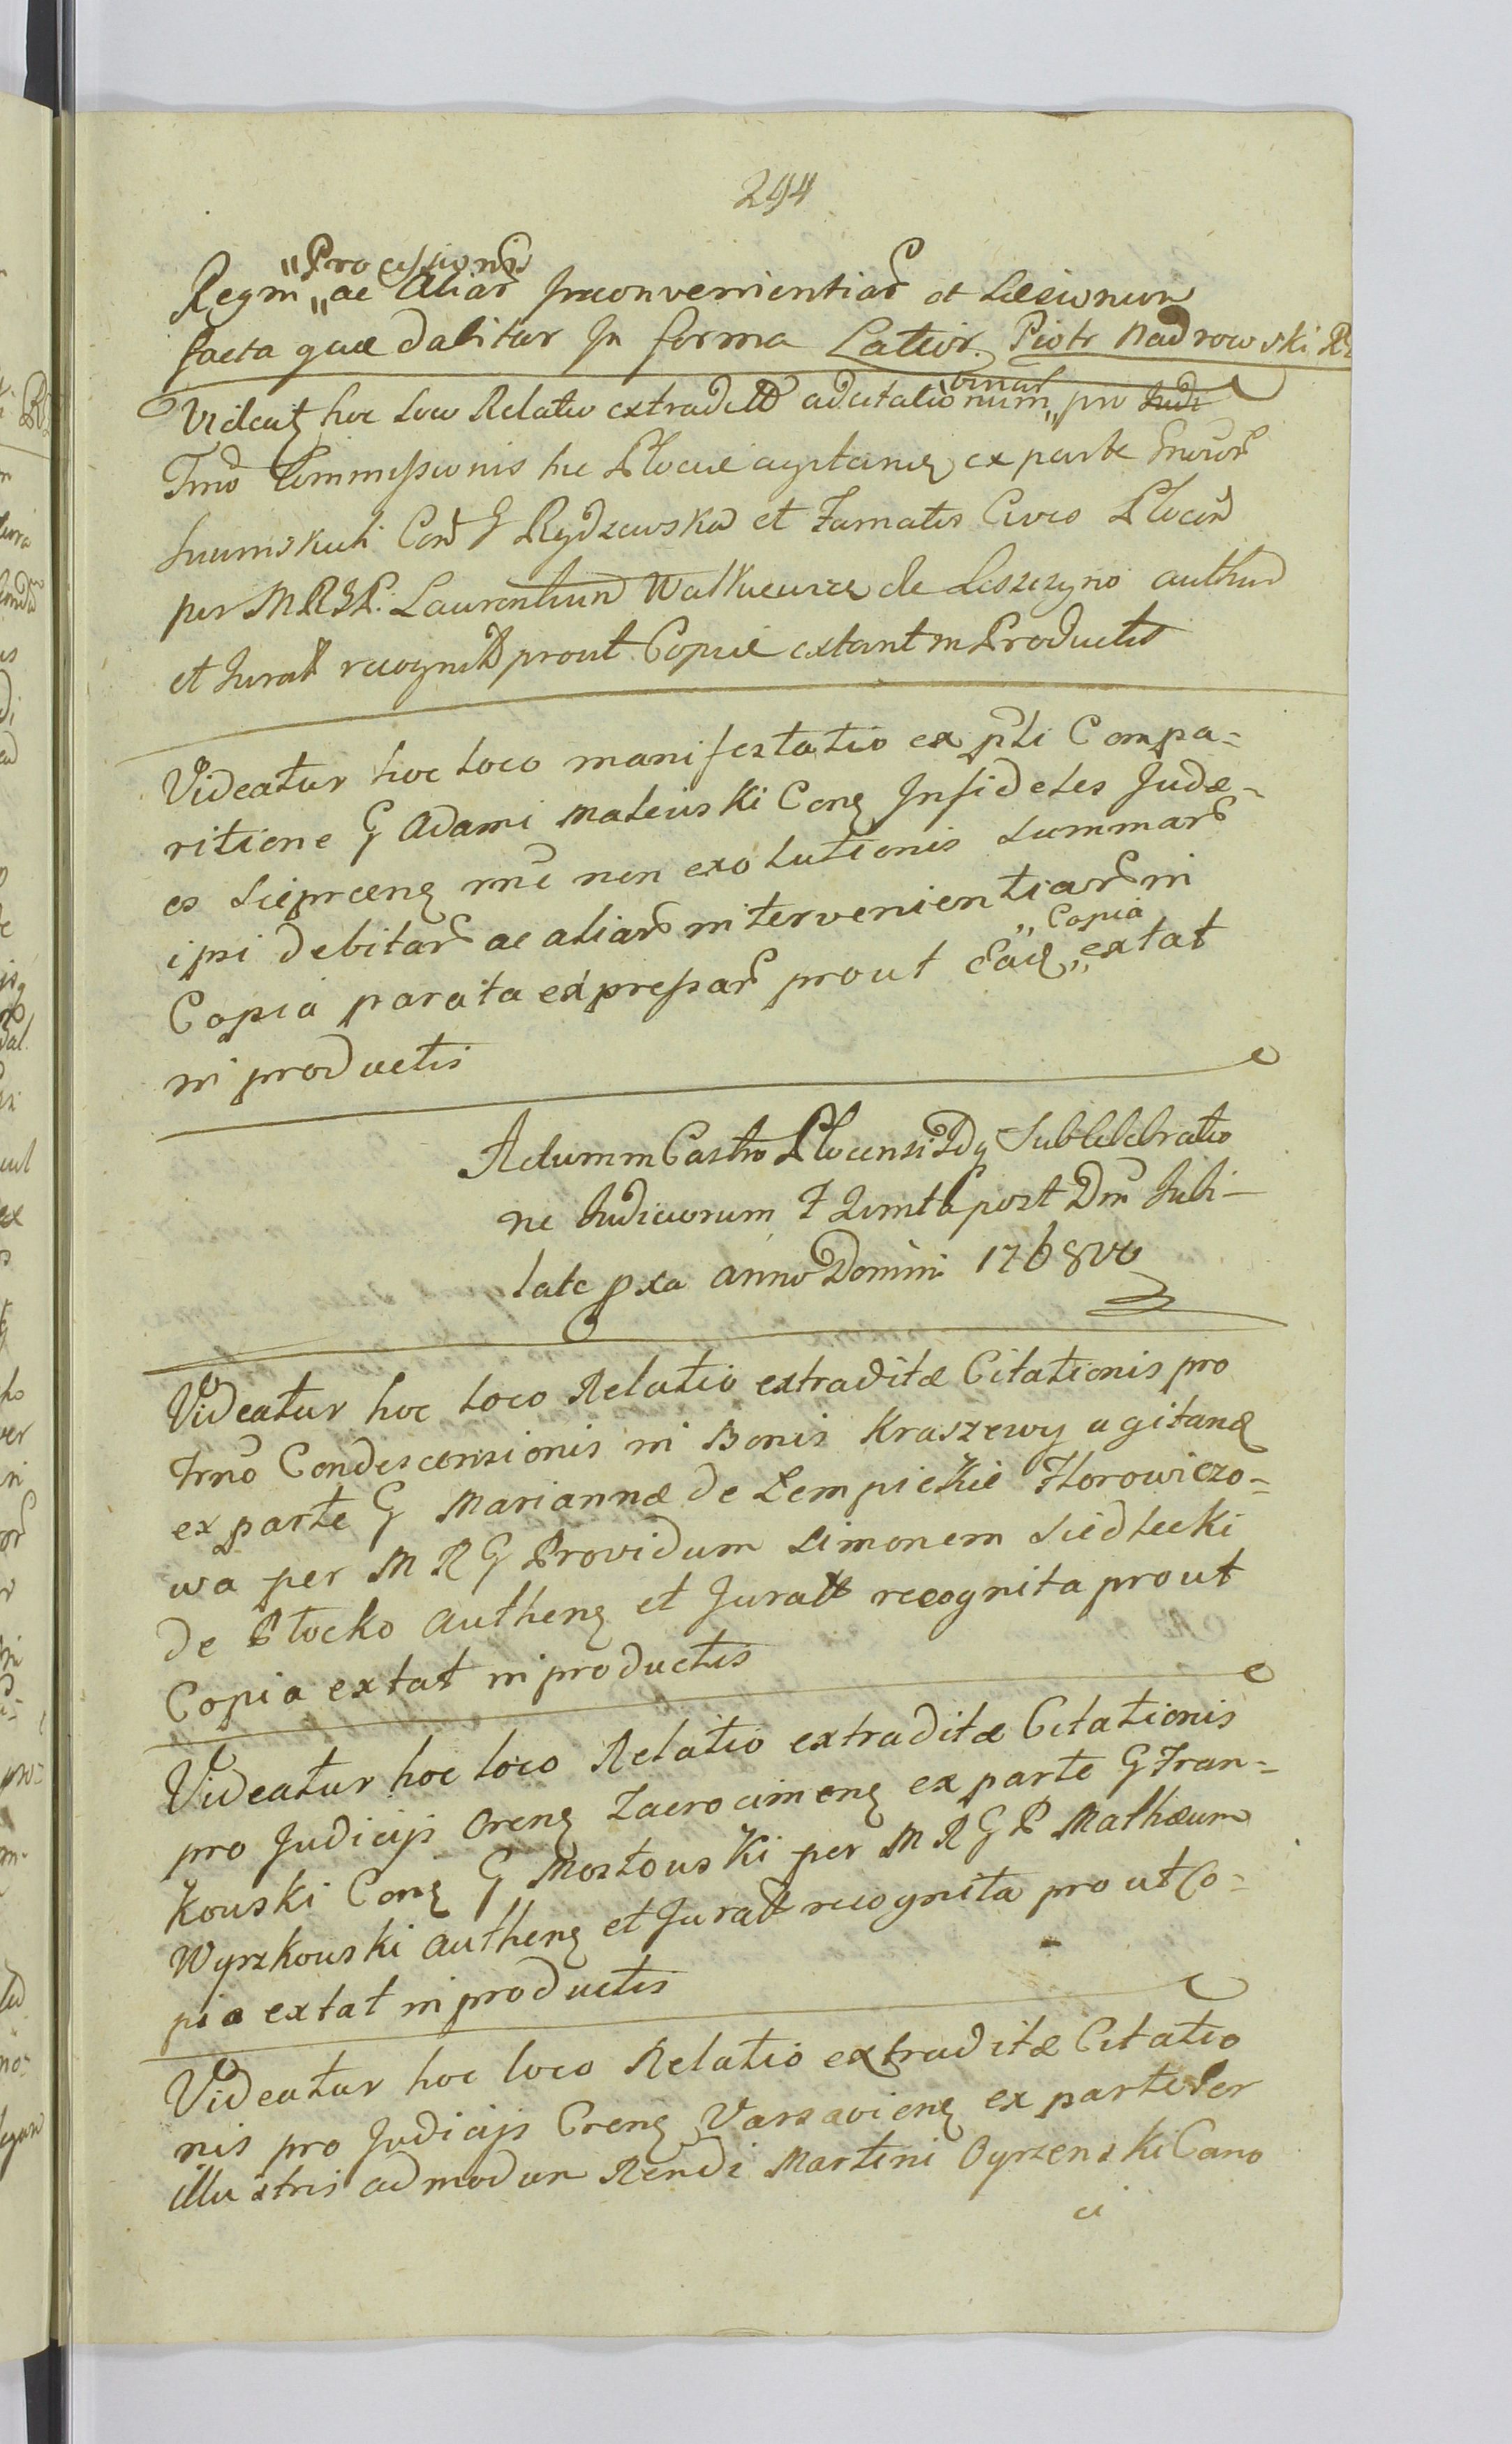 294
"Processionis
Regni „ ac Aliar Inconvenientiar et Læsionum
facta quæ dabitur In forma Latior. Piotr Nadrowski
binar
Videat hoc loco Relatio extradit adcitationum „ pro Judi
Trno Commissionis hic Plociæ agitanæ ex parte
Szumskich Con G Rydzewska et Famatos Cives Plocen
per M R G P. Laurentium Walkiewicz de Leszczyno authen
et Jurat recognit prout Copiæ extant in Productis
Videatur hoc loco manifestatio ex psli Compa-
ritione G Adami Mateuski Con Infideles Judæ-
os Sieprcen rne non exolutionis Summar
ipsi debitar ac aliar intervenientiar in
„ Copia
Copia parata expressar prout Ead „ extat
in productis
Actum in Castro Plocensi Sub Celebratio
ne Judiciorum F Quinta post Dm Jubi-
late pxa Anno Domini 1768vo
Videatur hoc loco Relatio extraditæ Citationis pro
Trno Condescensionis in Bonis Kraszewy agitanæ
ex parte G Mariannæ de Lempickie Florowiczo-
wa per M R G Providum Simonem Siedlecki
de Płocko authen et Jurat recognita prout
Copia extat in productis
Videatur hoc loco Relatio extraditæ Citationis
pro Judicijs Oren Zacrocimen ex parte G Fran-
kouski Con G Mostouski per M R G P Mathæum
Wyrzkouski authen et Jurat recognita prout Co-
pia extat in productis
Videatur hoc loco Relatio extraditæ Citatio
nis pro Judicijs Cren Varsavien ex parte Per
illustris admodum Rendi Martini Oyrzenski Cano
ci